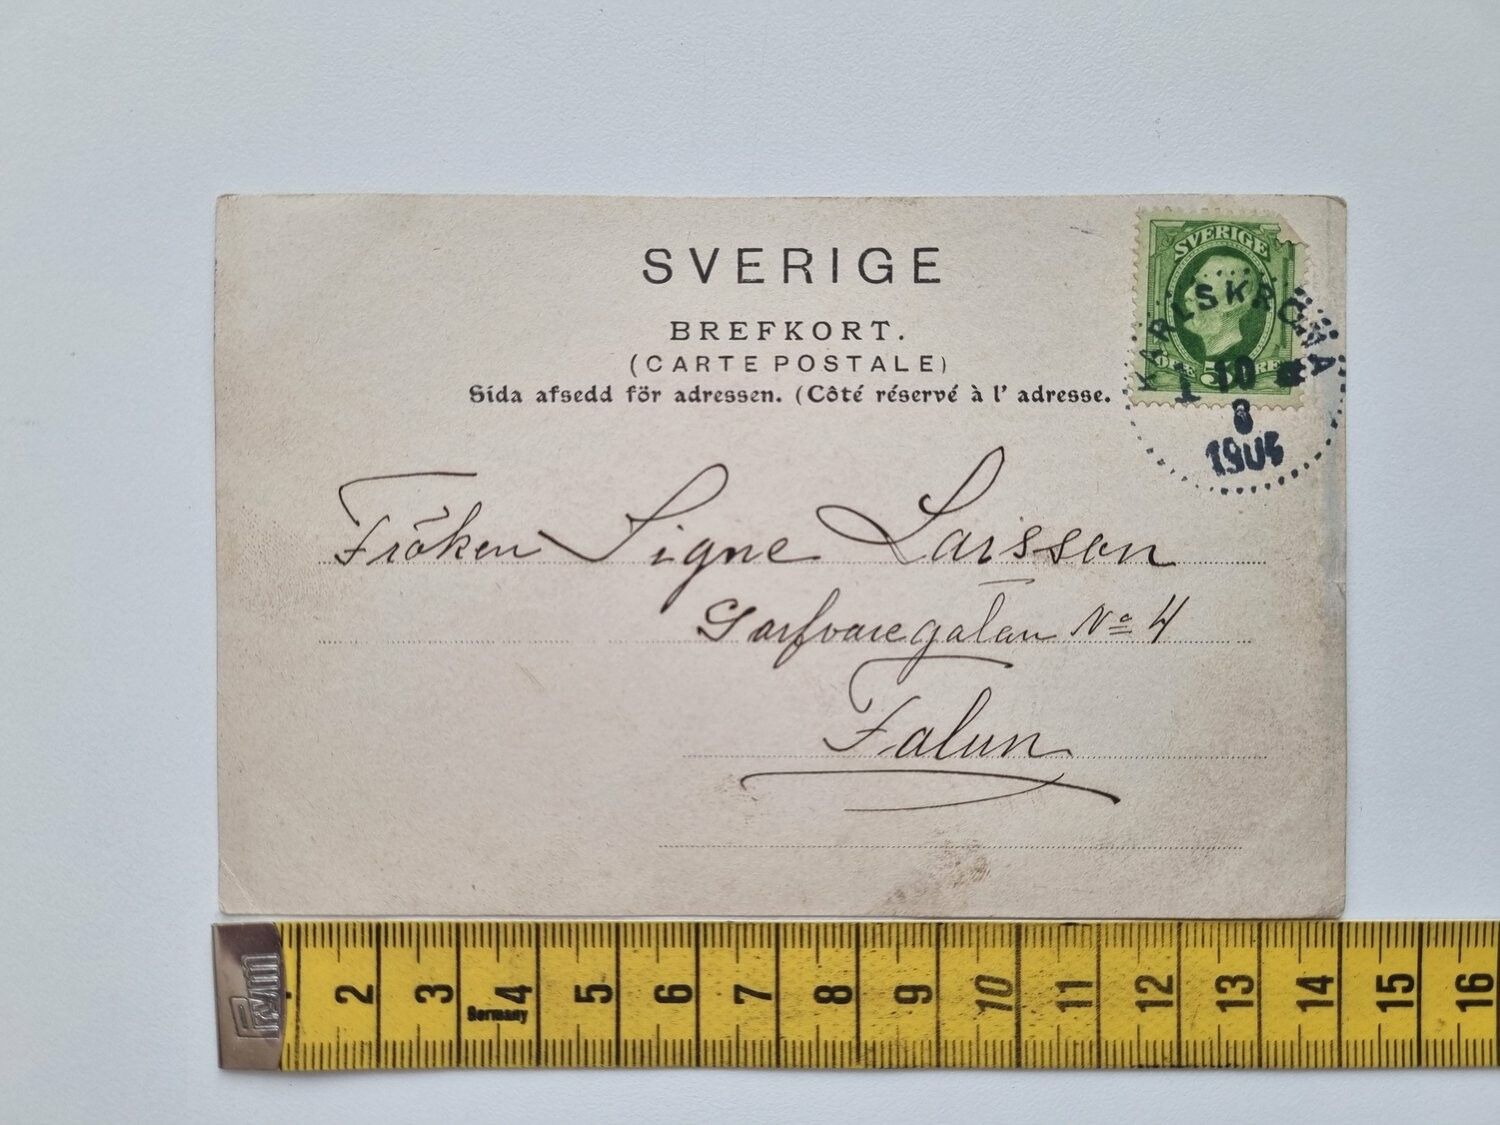 SVERIGE
BREFKORT.
(CARTE POSTALE)
Sida afsedd för adressen. (Côté réservé à l' adresse.
SVERIGE
ÖRE 5 ÖRE
KARLSKRONA
1 10
8
Fröken Signe Larsson
Garfvaregatan No 4
Falun
Prym
Germany
2 3 4 5 6 7 8 9 10 11 12 13 14 15 16